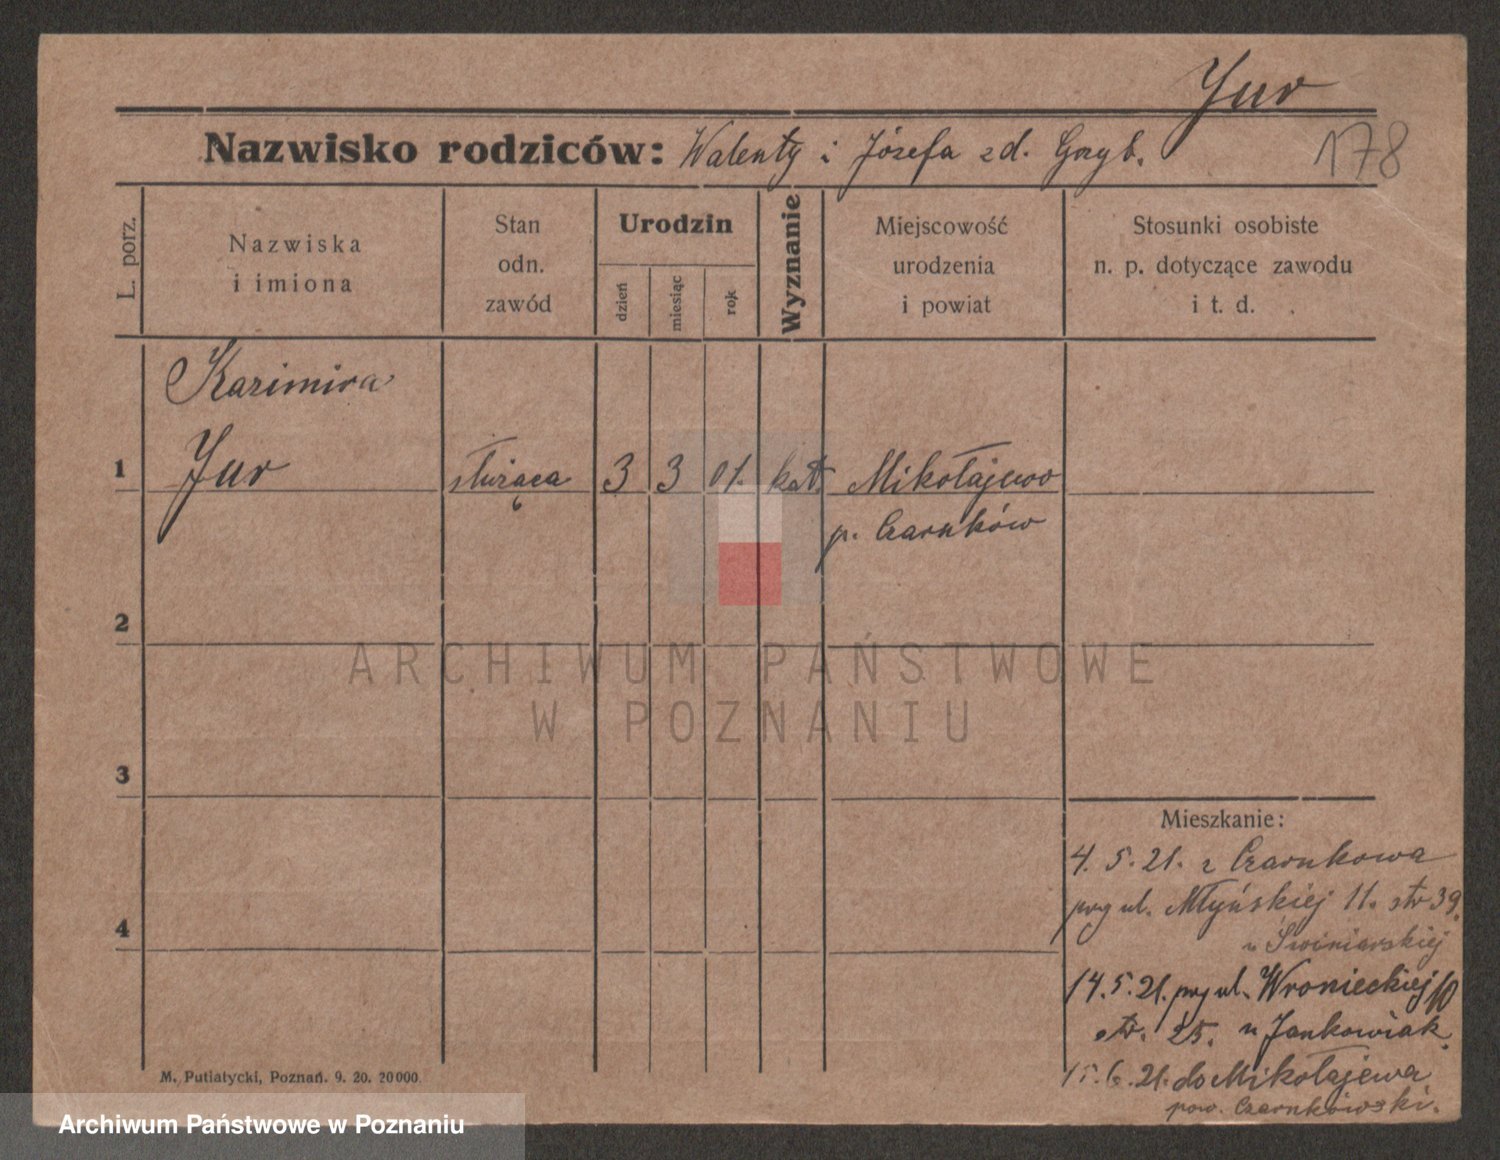 Jur
178
Nazwisko rodziców: Walenty i Józefa zd. Grzyb.
L. porz.
Nazwiska
i imiona
Stan
odn.
zawód
Urodzin
dzień
miesiąc
rok
Wyznanie
Miejscowość
urodzenia
i powiat
Stosunki osobiste
n. p. dotyczące zawodu
i t. d.
Kazimira
1 Jur służąca 3 3 01. kat. Mikołajewo
p. Czarnków
2
3
4
Mieszkanie:
4. 5. 21. z Czarnkowa
przy ul. Młyńskiej 11. str 39.
u Świniarskiej
14. 5. 21. przy ul. Wronieckiej 10
str. 25. u Jankowiak.
15. 6. 21. do Mikołajewa
pow. Czarnkowski.
M. Putiatycki, Poznań. 9. 20. 20000.
ARCHIWUM PAŃSTWOWE
W POZNANIU
Archiwum Państwowe w Poznaniu